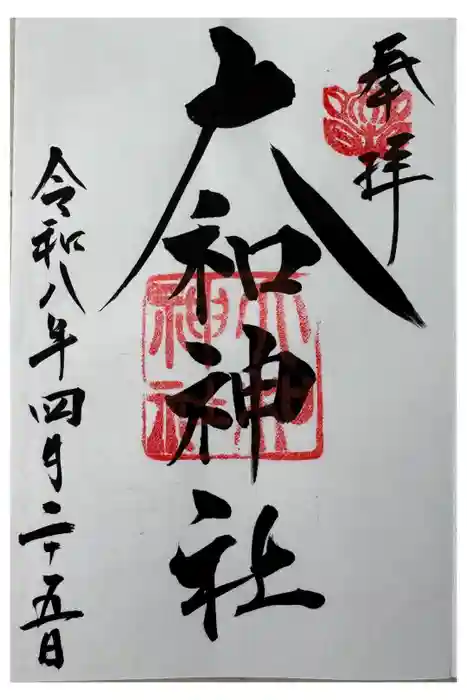 奉拝
大和神社
大和
神社
令和八年四月二十五日